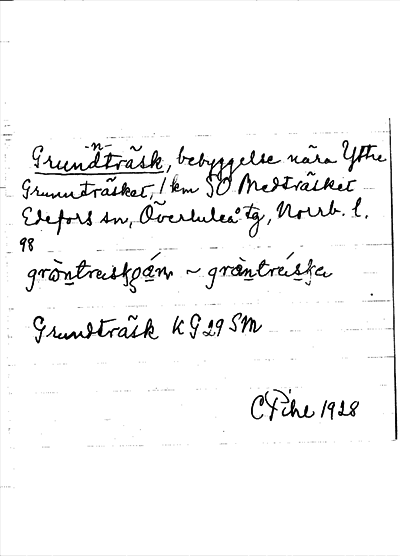 Grundträsk, bebyggelse nära Yttre
Grunnträsket, 1 km SO Medträsket
Edefors sn, Överluleå tg, Norrb. l.
98
gròntraiskgán ~ gròntraíska
Grundträsk KG29 SM
C Pihl 1928